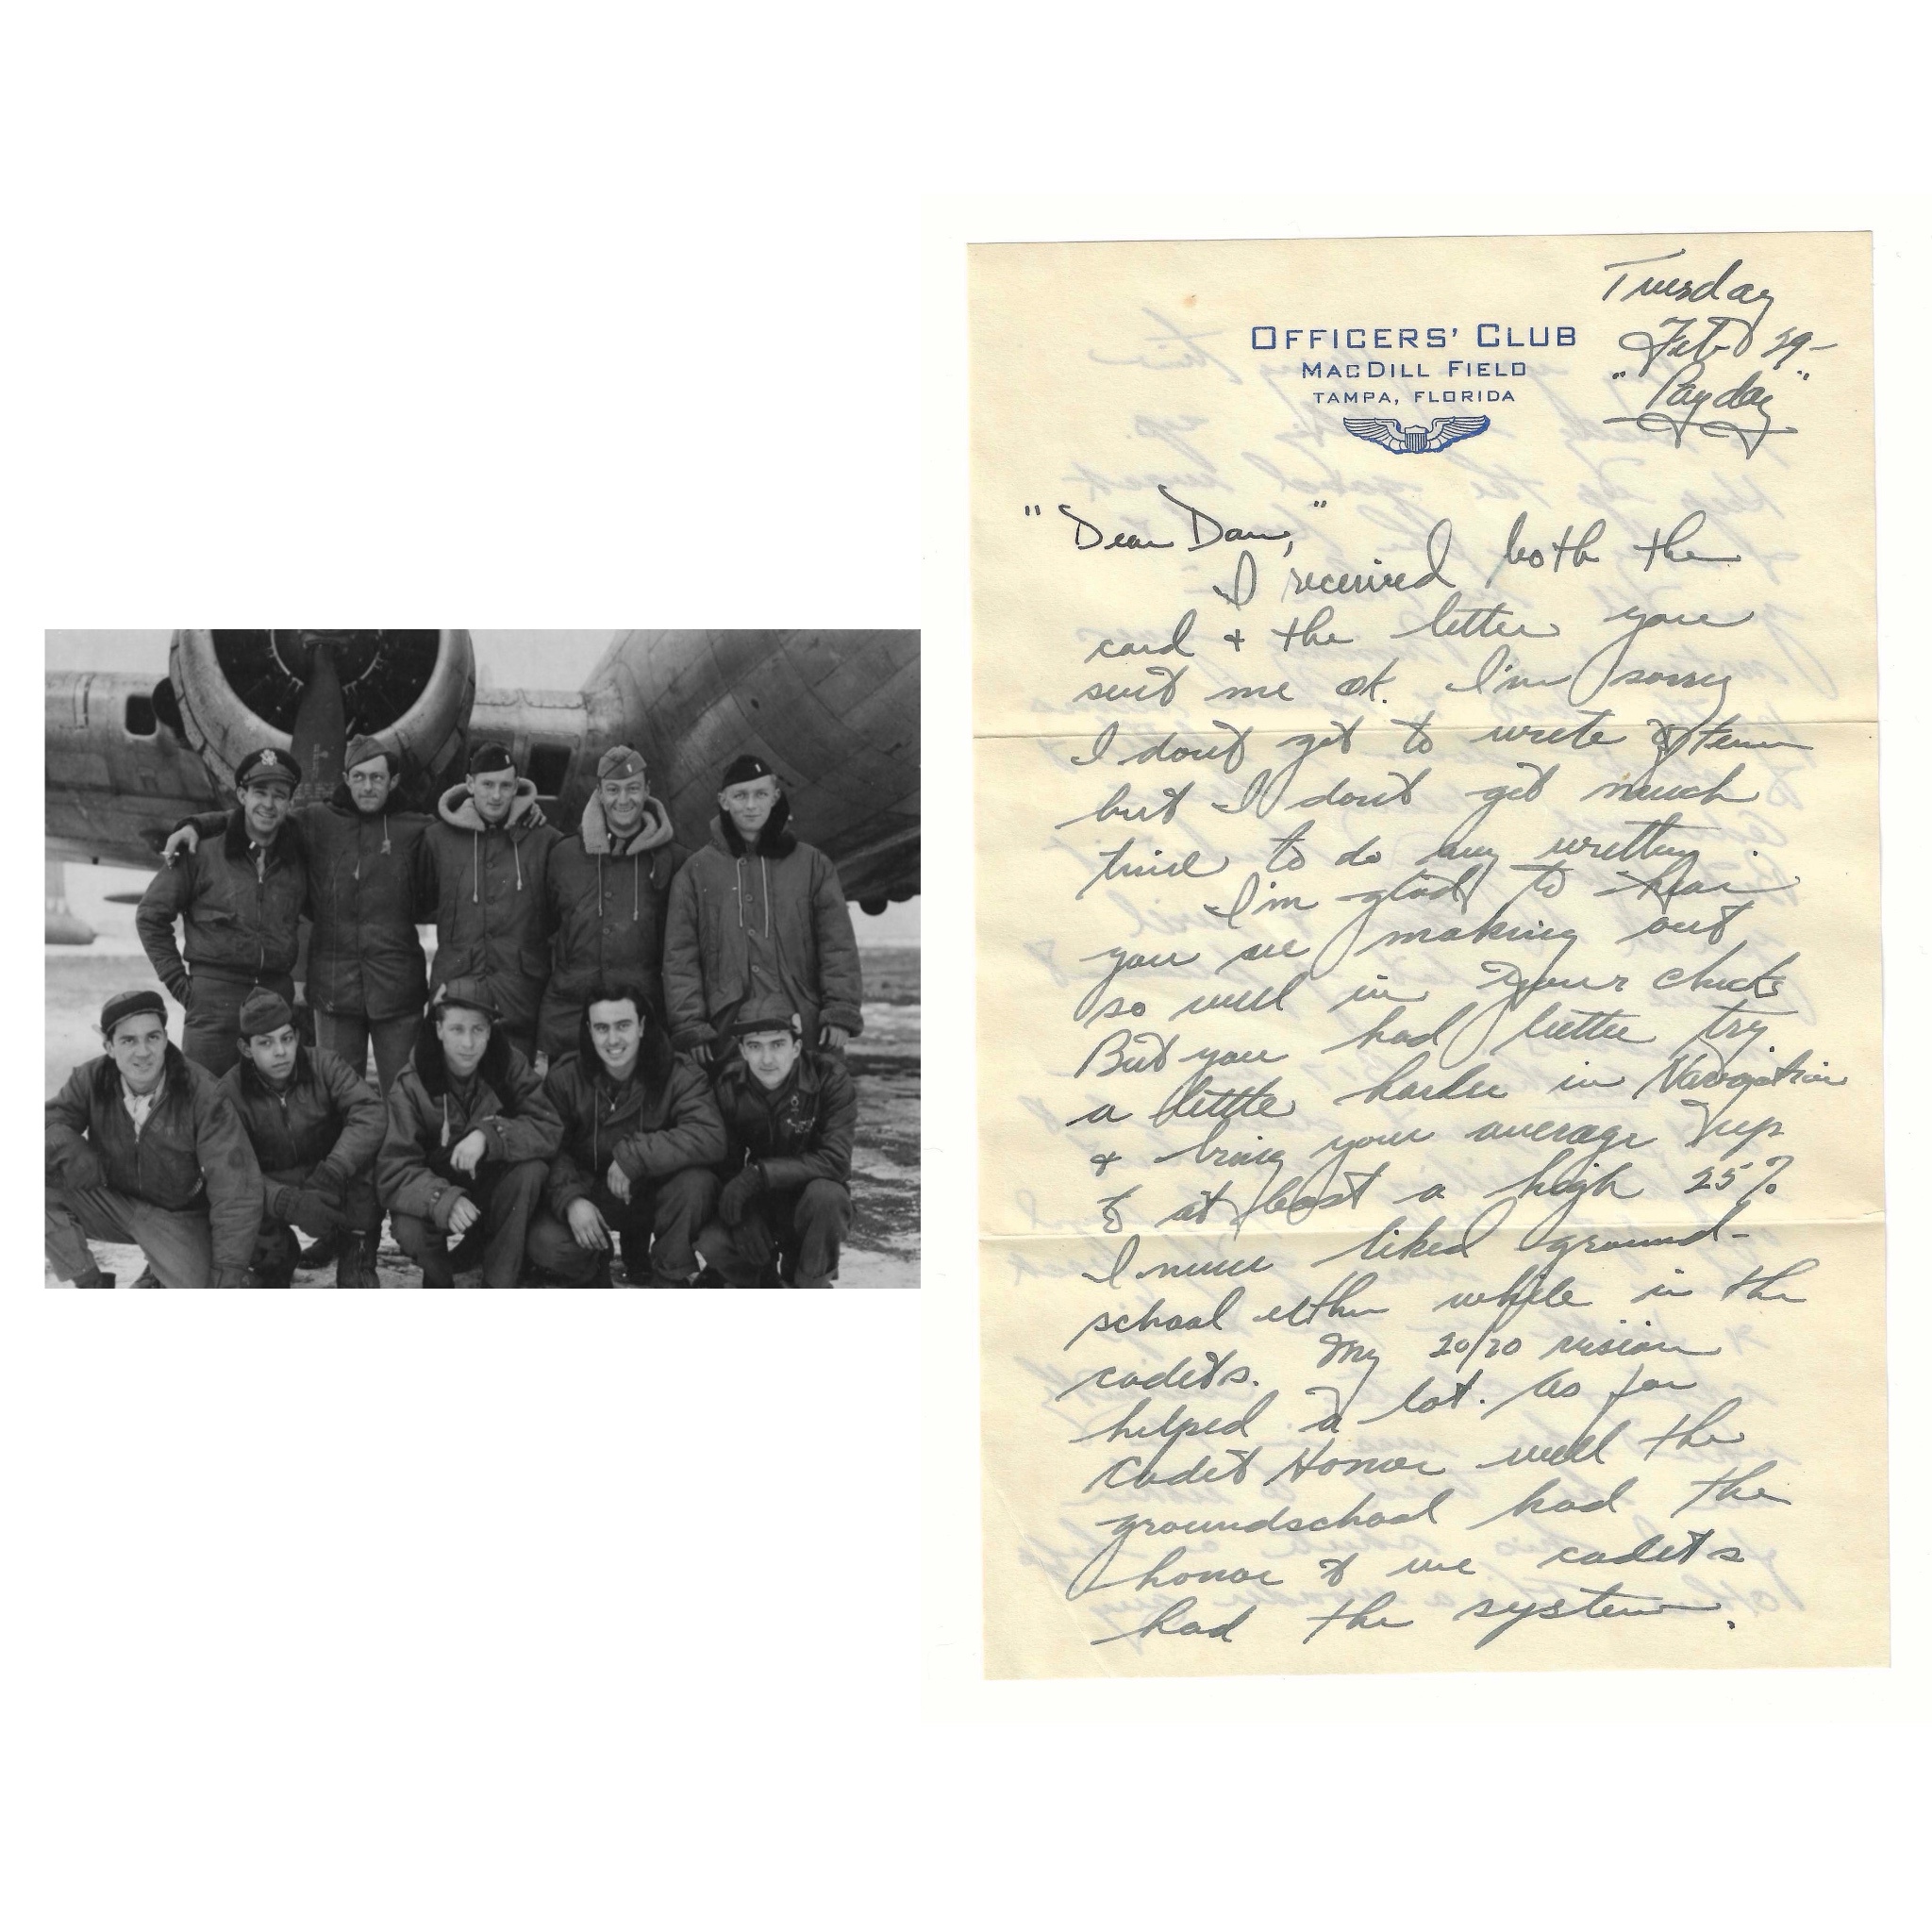 Tuesday
Feb 29-
"Payday"
OFFICERS' CLUB
MACDILL FIELD
TAMPA, FLORIDA
"Dear Dan,"
I received both the
card & the letter you
sent me ok. I'm sorry
I dont get to write often
but I dont get much
time to do any writting.
I'm glad to hear
you are making out
so well in your checks
But you had better try
a little harder in Navigation
& bring your average up
to at least a high 25%
I never liked ground-
school either while in the
cadets. My 20/20 vision
helped a lot. As far
Cadet Honor well the
groundschool had the
honor & we cadets
had the system.